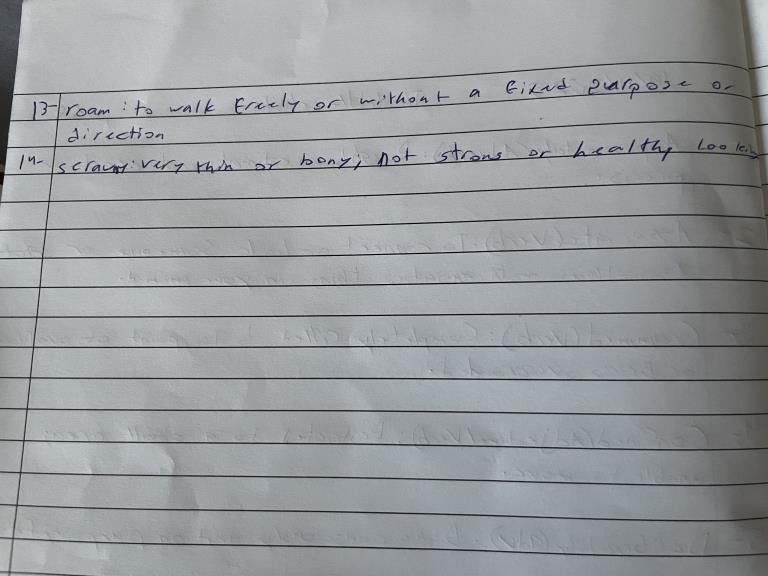 13- roam: to walk freely or without a fixed purpose or
direction
14- scrawny: very thin or bony; not strong or healthy looking